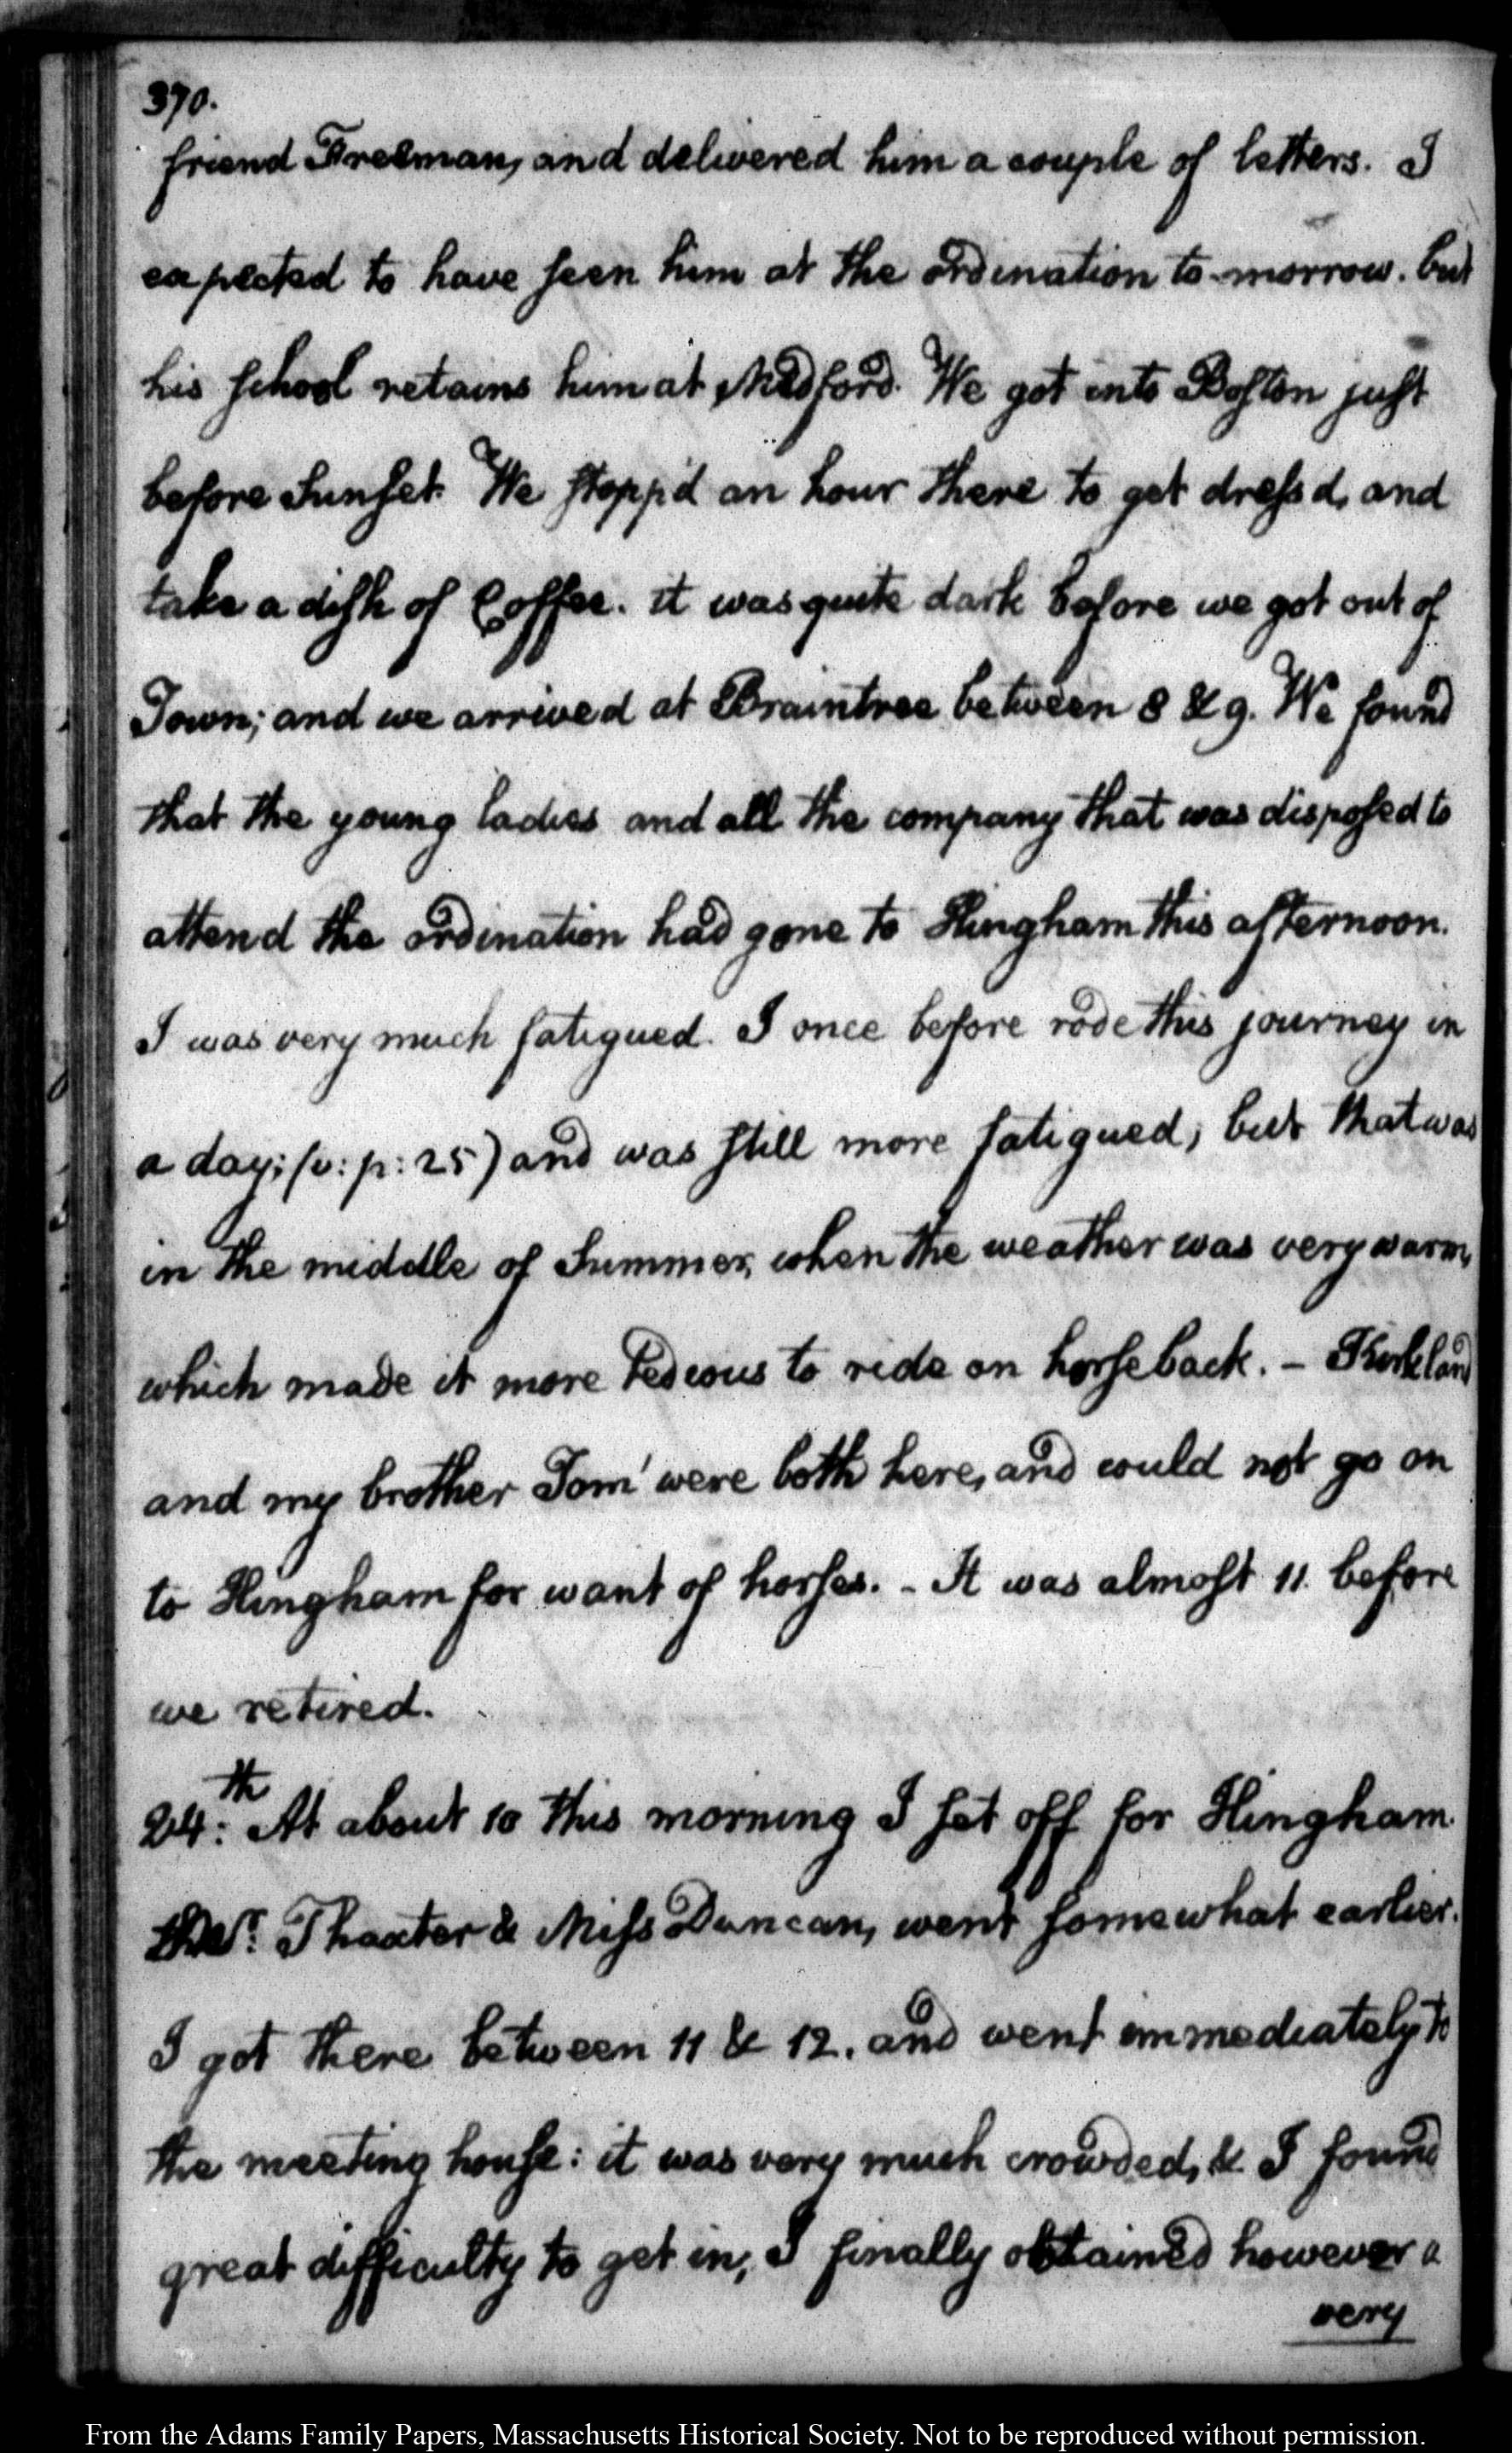 370.
friend Freeman, and delivered him a couple of letters. I
expected to have seen him at the ordination to-morrow. but
his school retains him at Medford. We got into Boston just
before Sunset. We stopp'd an hour there to get dress'd, and
take a dish of Coffee. it was quite dark before we got out of
Town; and we arrived at Braintree between 8 & 9. We found
that the young ladies and all the company that was disposed to
attend the ordination had gone to Hingham this afternoon.
I was very much fatigued. I once before rode this journey in
a day; (v: p: 25) and was still more fatigued; but that was
in the middle of Summer, when the weather was very warm,
which made it more tedious to ride on horseback. – Kirkland
and my brother Tom' were both here, and could not go on
to Hingham for want of horses. – It was almost 11. before
we retired.
24:th At about 10 this morning I set off for Hingham.
Mr: Thaxter & Miss Duncan, went somewhat earlier.
I got there between 11 & 12. and went immediately to
the meeting house: it was very much crowded, & I found
great difficulty to get in, I finally obtained however a
very
From the Adams Family Papers, Massachusetts Historical Society. Not to be reproduced without permission.